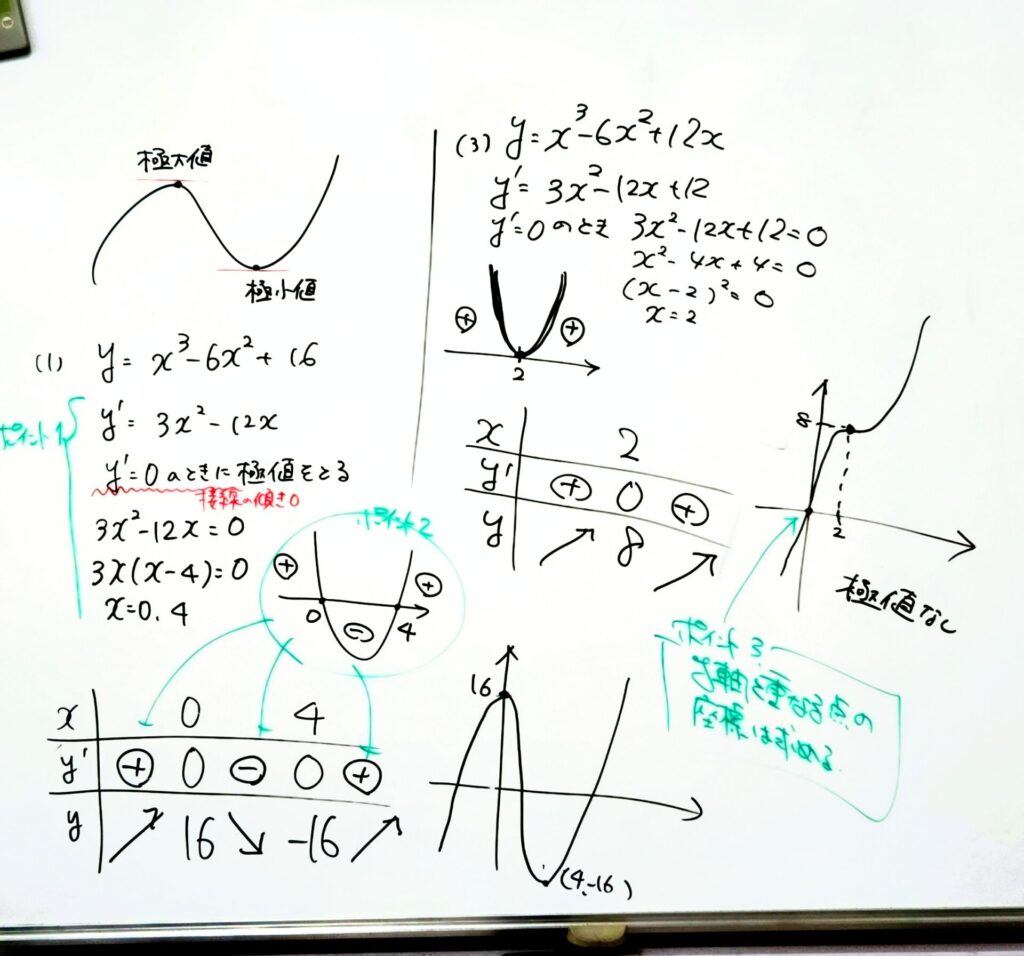 極大値
極小値
(1) y = x³-6x²+16
ポイント1
y' = 3x²-12x
y'=0のときに極値をとる
接線の傾き0
3x²-12x=0
3x(x-4)=0
x=0.4
ポイント2
⊕ ⊕
0 ⊖ 4
x 0 4
y' ⊕ 0 ⊖ 0 ⊕
y ↗ 16 ↘ -16 ↗
(3) y=x³-6x²+12x
y'= 3x²-12x+12
y'=0のとき 3x²-12x+12=0
x²-4x+4=0
(x-2)²=0
x=2
⊕ ⊕
2
x 2
y' ⊕ 0 ⊕
y ↗ 8 ↗
8
2
極値なし
ポイント3
y軸と重なる点の
座標は求める
16
(4,-16)